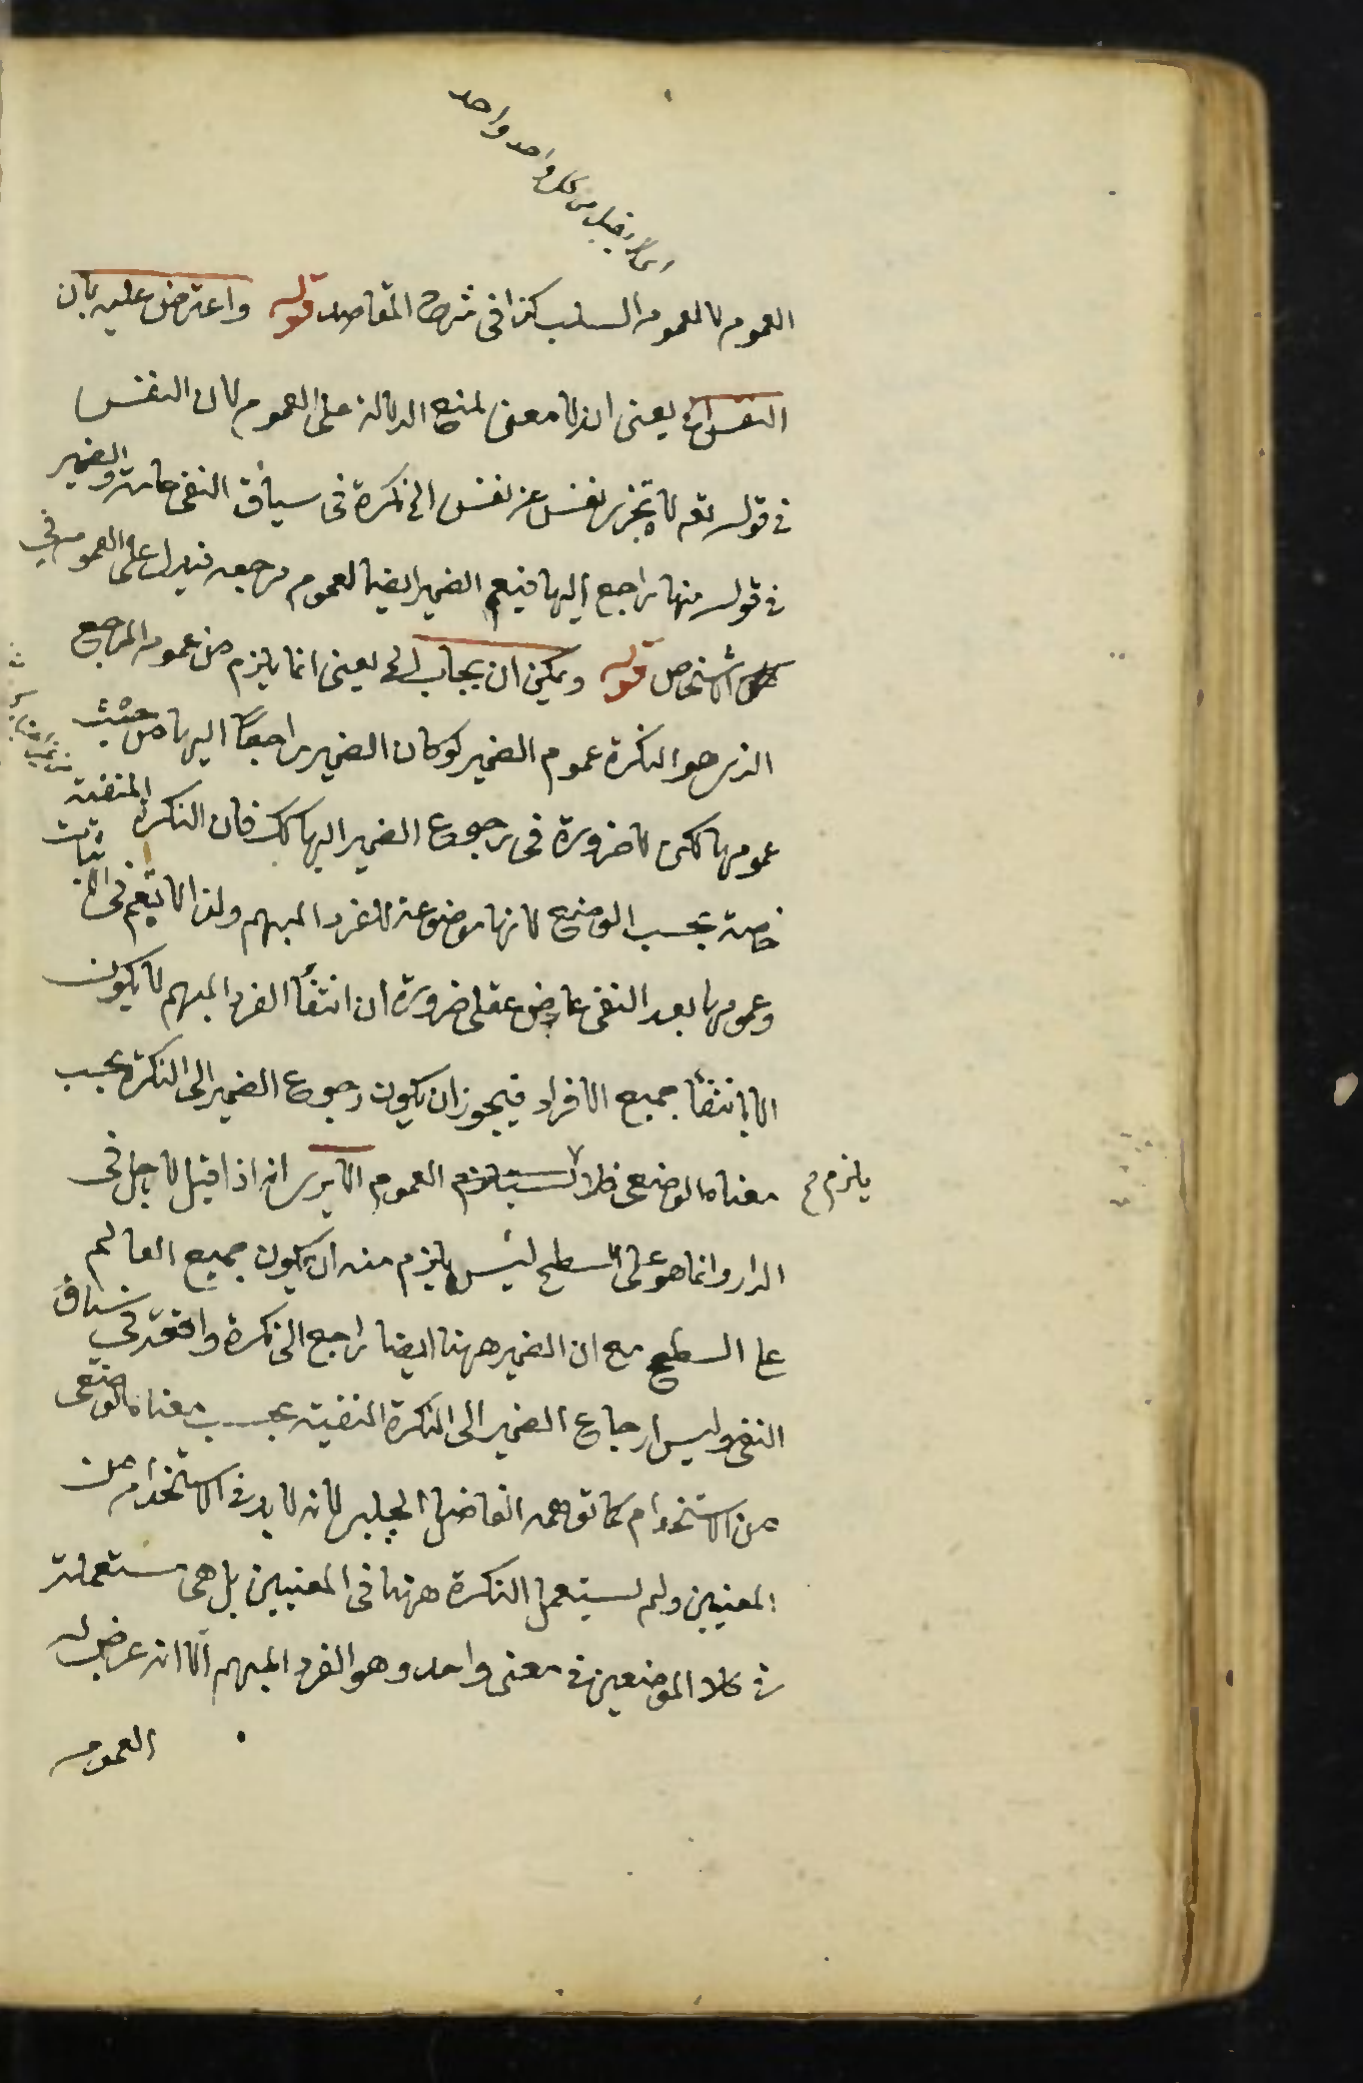 اى لا يقبل من كل واحد واحد
العموم لا لعموم السلب كذا فى شرح المقاصد قوله واعترض عليه بان
النفس اه يعنى انه لا معنى لمنع الدلالة على العموم لان النفس
فى قوله تعه لا تجزى نفس عن نفس الخ نكرة فى سياق النفى عامة والضمير
فى قوله منها راجع اليها فيعم الضمير ايضا لعموم مرجعه فيدل على العموم فى
الاشخاص قوله ويمكن ان يجاب الخ يعنى انما يلزم من عموم المرجع
الذى هو النكرة عموم الضمير لو كان الضمير راجعًا اليها من حيث
عمومها لكن لا ضرورة فى رجوع الضمير اليها كك فان النكرة المنفية
خاصة بحسب الوضع لانها موضوعة للفرد المبهم ولذا لا تعم فى الاثبات
وعمومها بعد النفى عارض عقلى ضرورة ان انتفأ الفرد المبهم لا يكون
الا بانتفأ جميع الافراد فيجوز ان يكون رجوع الضمير الى النكرة بحسب
معناه الوضعى فلا يستلزم العموم الا يرى انه اذا قيل لا رجل فى
يلزم
الدار وانما هو على السطح ليس يلزم منه ان يكون جميع العالم
على السطح مع ان الضمير ههنا ايضا راجع الى نكرة واقعة فى سياق
النفى وليس ارجاع الضمير الى النكرة المنفية بحسب معناه الوضعى
من الاستخدام كما توهمه الفاضل الچلبى لانه لا بد فى الاستخدام من
المعنيين ولم يستعمل النكرة ههنا فى المعنيين بل هى مستعملة
فى كلا الموضعين فى معنى واحد وهو الفرد المبهم الا انه عرض له
العموم